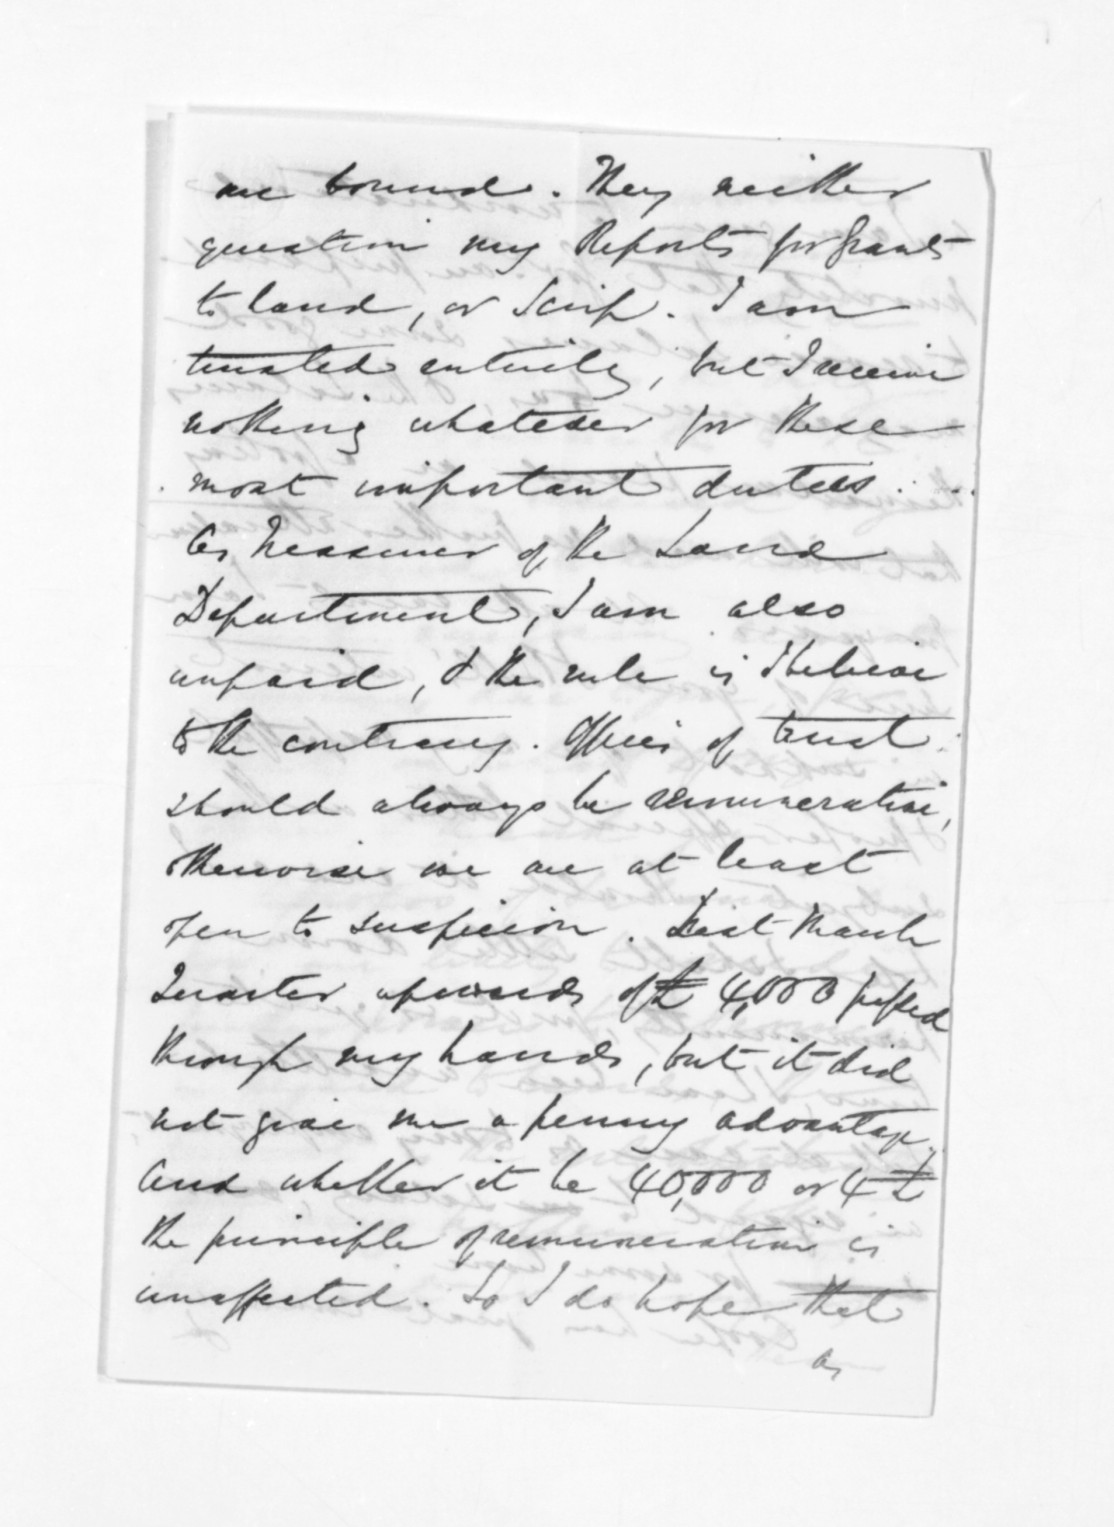 are bound. They neither
question my Reports for Grants
to land, or Scrip. I am
trusted entirely, but I receive
nothing whatever for these
most important duties.
As Treasurer of the Land
Department, I am also
unpaid, & the rule is I believe
to the contrary. Offices of trust
should always be remunerative,
otherwise we are at least
open to suspicion. Last March
Quarter upwards of £4,000 passed
through my hands, but it did
not give me a penny advantage,
And whether it be 40,000 or 4£
the principle of remuneration is
unaffected. So I do hope that
as